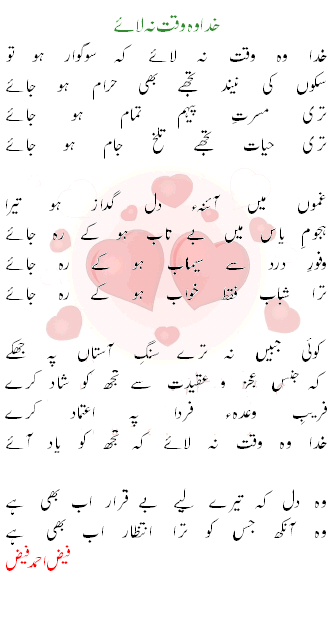 خدا وہ وقت نہ لائے
خدا وہ وقت نہ لائے کہ سوگوار ہو تو
سکوں کی نیند تجھے بھی حرام ہو جائے
تری مسرتِ پیہم تمام ہو جائے
تری حیات تجھے تلخ جام ہو جائے
غموں میں آئنہء دل گداز ہو تیرا
ہجومِ یاس میں بے تاب ہو کے رہ جائے
وفورِ درد سے سیماب ہو کے رہ جائے
ترا شباب فقط خواب ہو کے رہ جائے
کوئی جبیں نہ ترے سنگِ آستاں پہ جھکے
کہ جنسِ عجز و عقیدت سے تجھ کو شاد کرے
فریبِ وعدہء فردا پہ اعتماد کرے
خدا وہ وقت نہ لائے کہ تجھ کو یاد آئے
وہ دل کہ تیرے لیے بے قرار اب بھی ہے
وہ آنکھ جس کو ترا انتظار اب بھی ہے
فیض احمد فیض